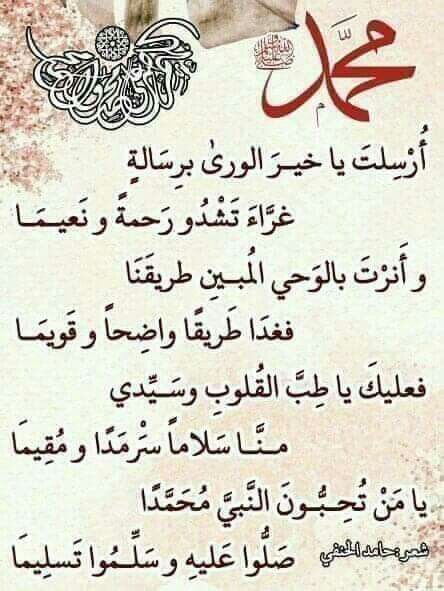 محمد
صلى الله عليه وسلم
أُرْسِلتَ يا خيـرَ الورىٰ برِسَالةٍ
غرَّاءَ تَشْدُو رَحمةً و نَعيـمَـا
و أَنرْتَ بالوَحي المُبـينِ طريقَنَا
فغدَا طَريقًا واضِحاً و قَويمَـا
فعليكَ يا طِبَّ القُلوبِ وسَـيِّدي
مـنَّـا سَلاماً سَرْمَدًا و مُقِيمَا
يا مَنْ تُحِـبُّـونَ النَّبيَّ مُحَمَّدًا
صَلُّوا عَليهِ و سَلِّـمُوا تَسلِيمَا
شعر:حامد الحنفي